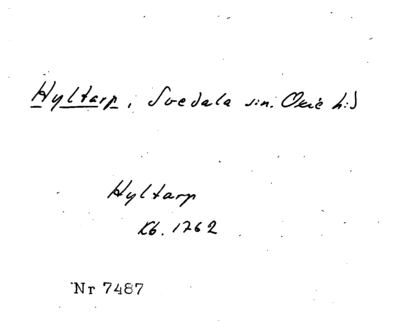 Hyltarp, Svedala sn. Oxie hd
Hyltarp
Kb. 1762
Nr 7487